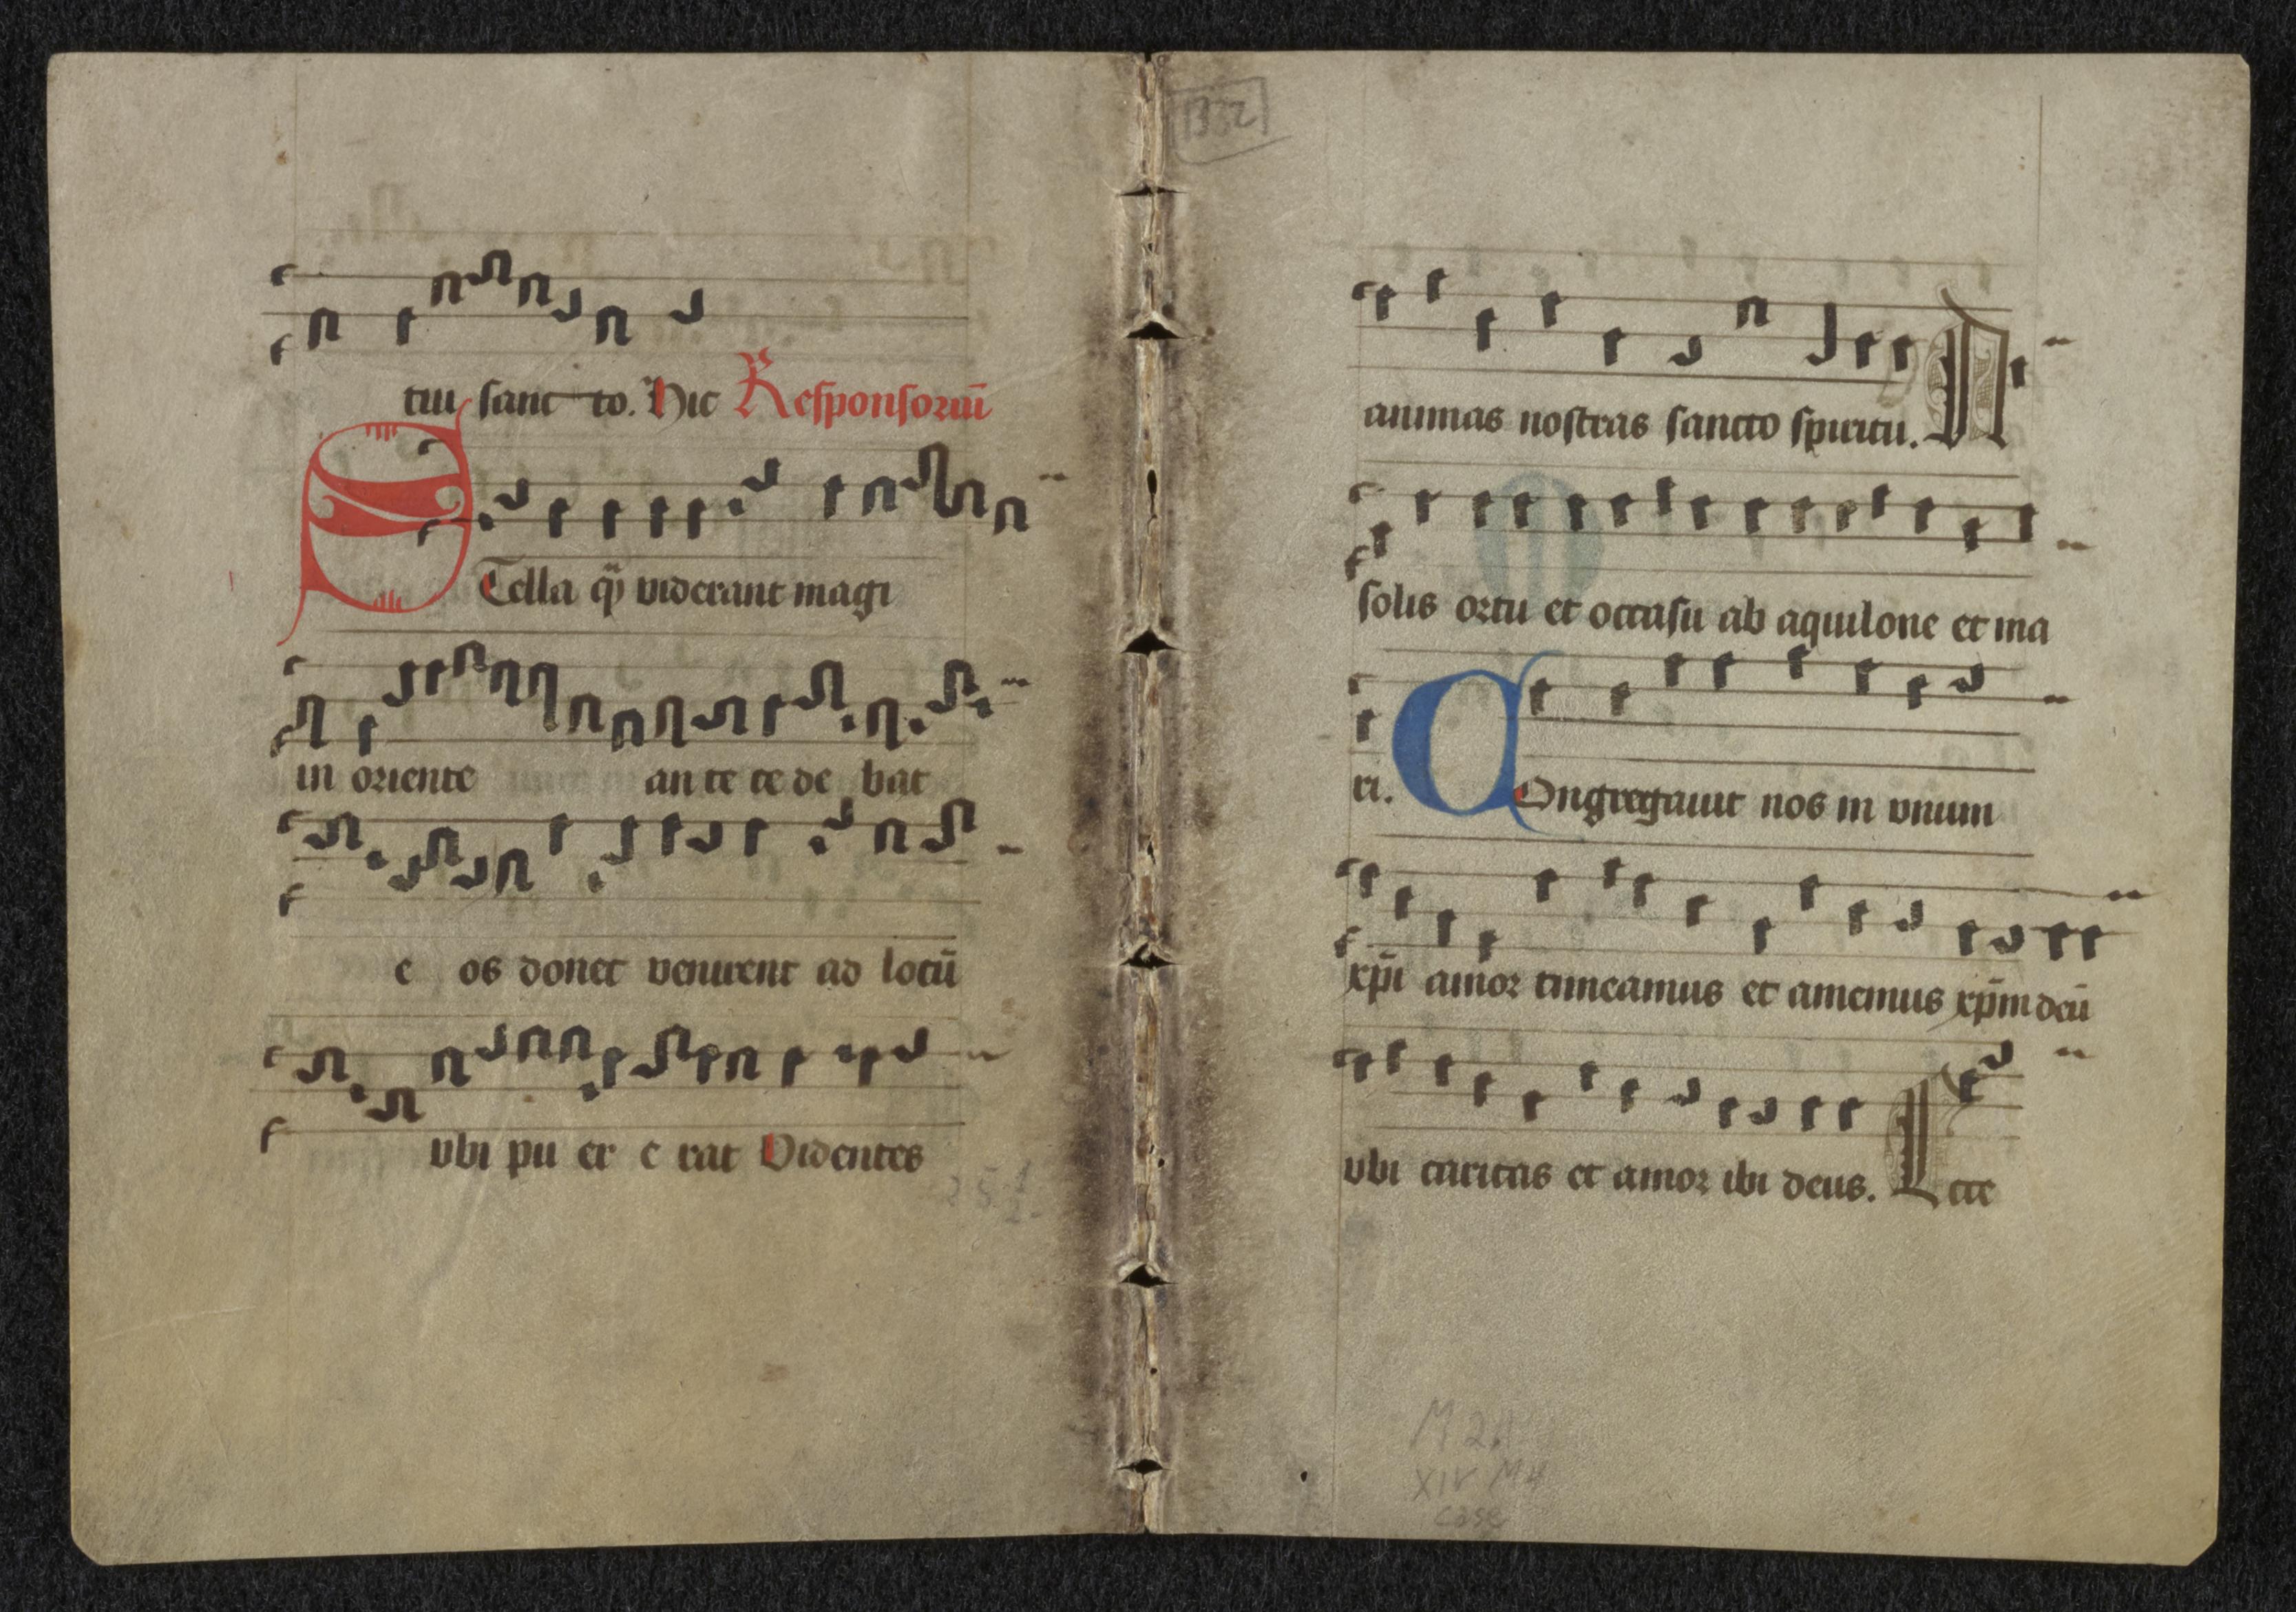 tui sanc to. Hic Responsoriū
STella q̄ viderant magi
in oriente an te ce de bat
e os donec venirent ad locū
vbi pu er e rat Videntes
25
1332
animas nostras sancto spiritu. A
solis ortu et occasu ab aquilone et ma
ri. COngregauit nos in vnum
xp̄i amor timeamus et amemus xp̄m deū
vbi caritas et amor ibi deus. L ete
M2.1
XIV M4
case